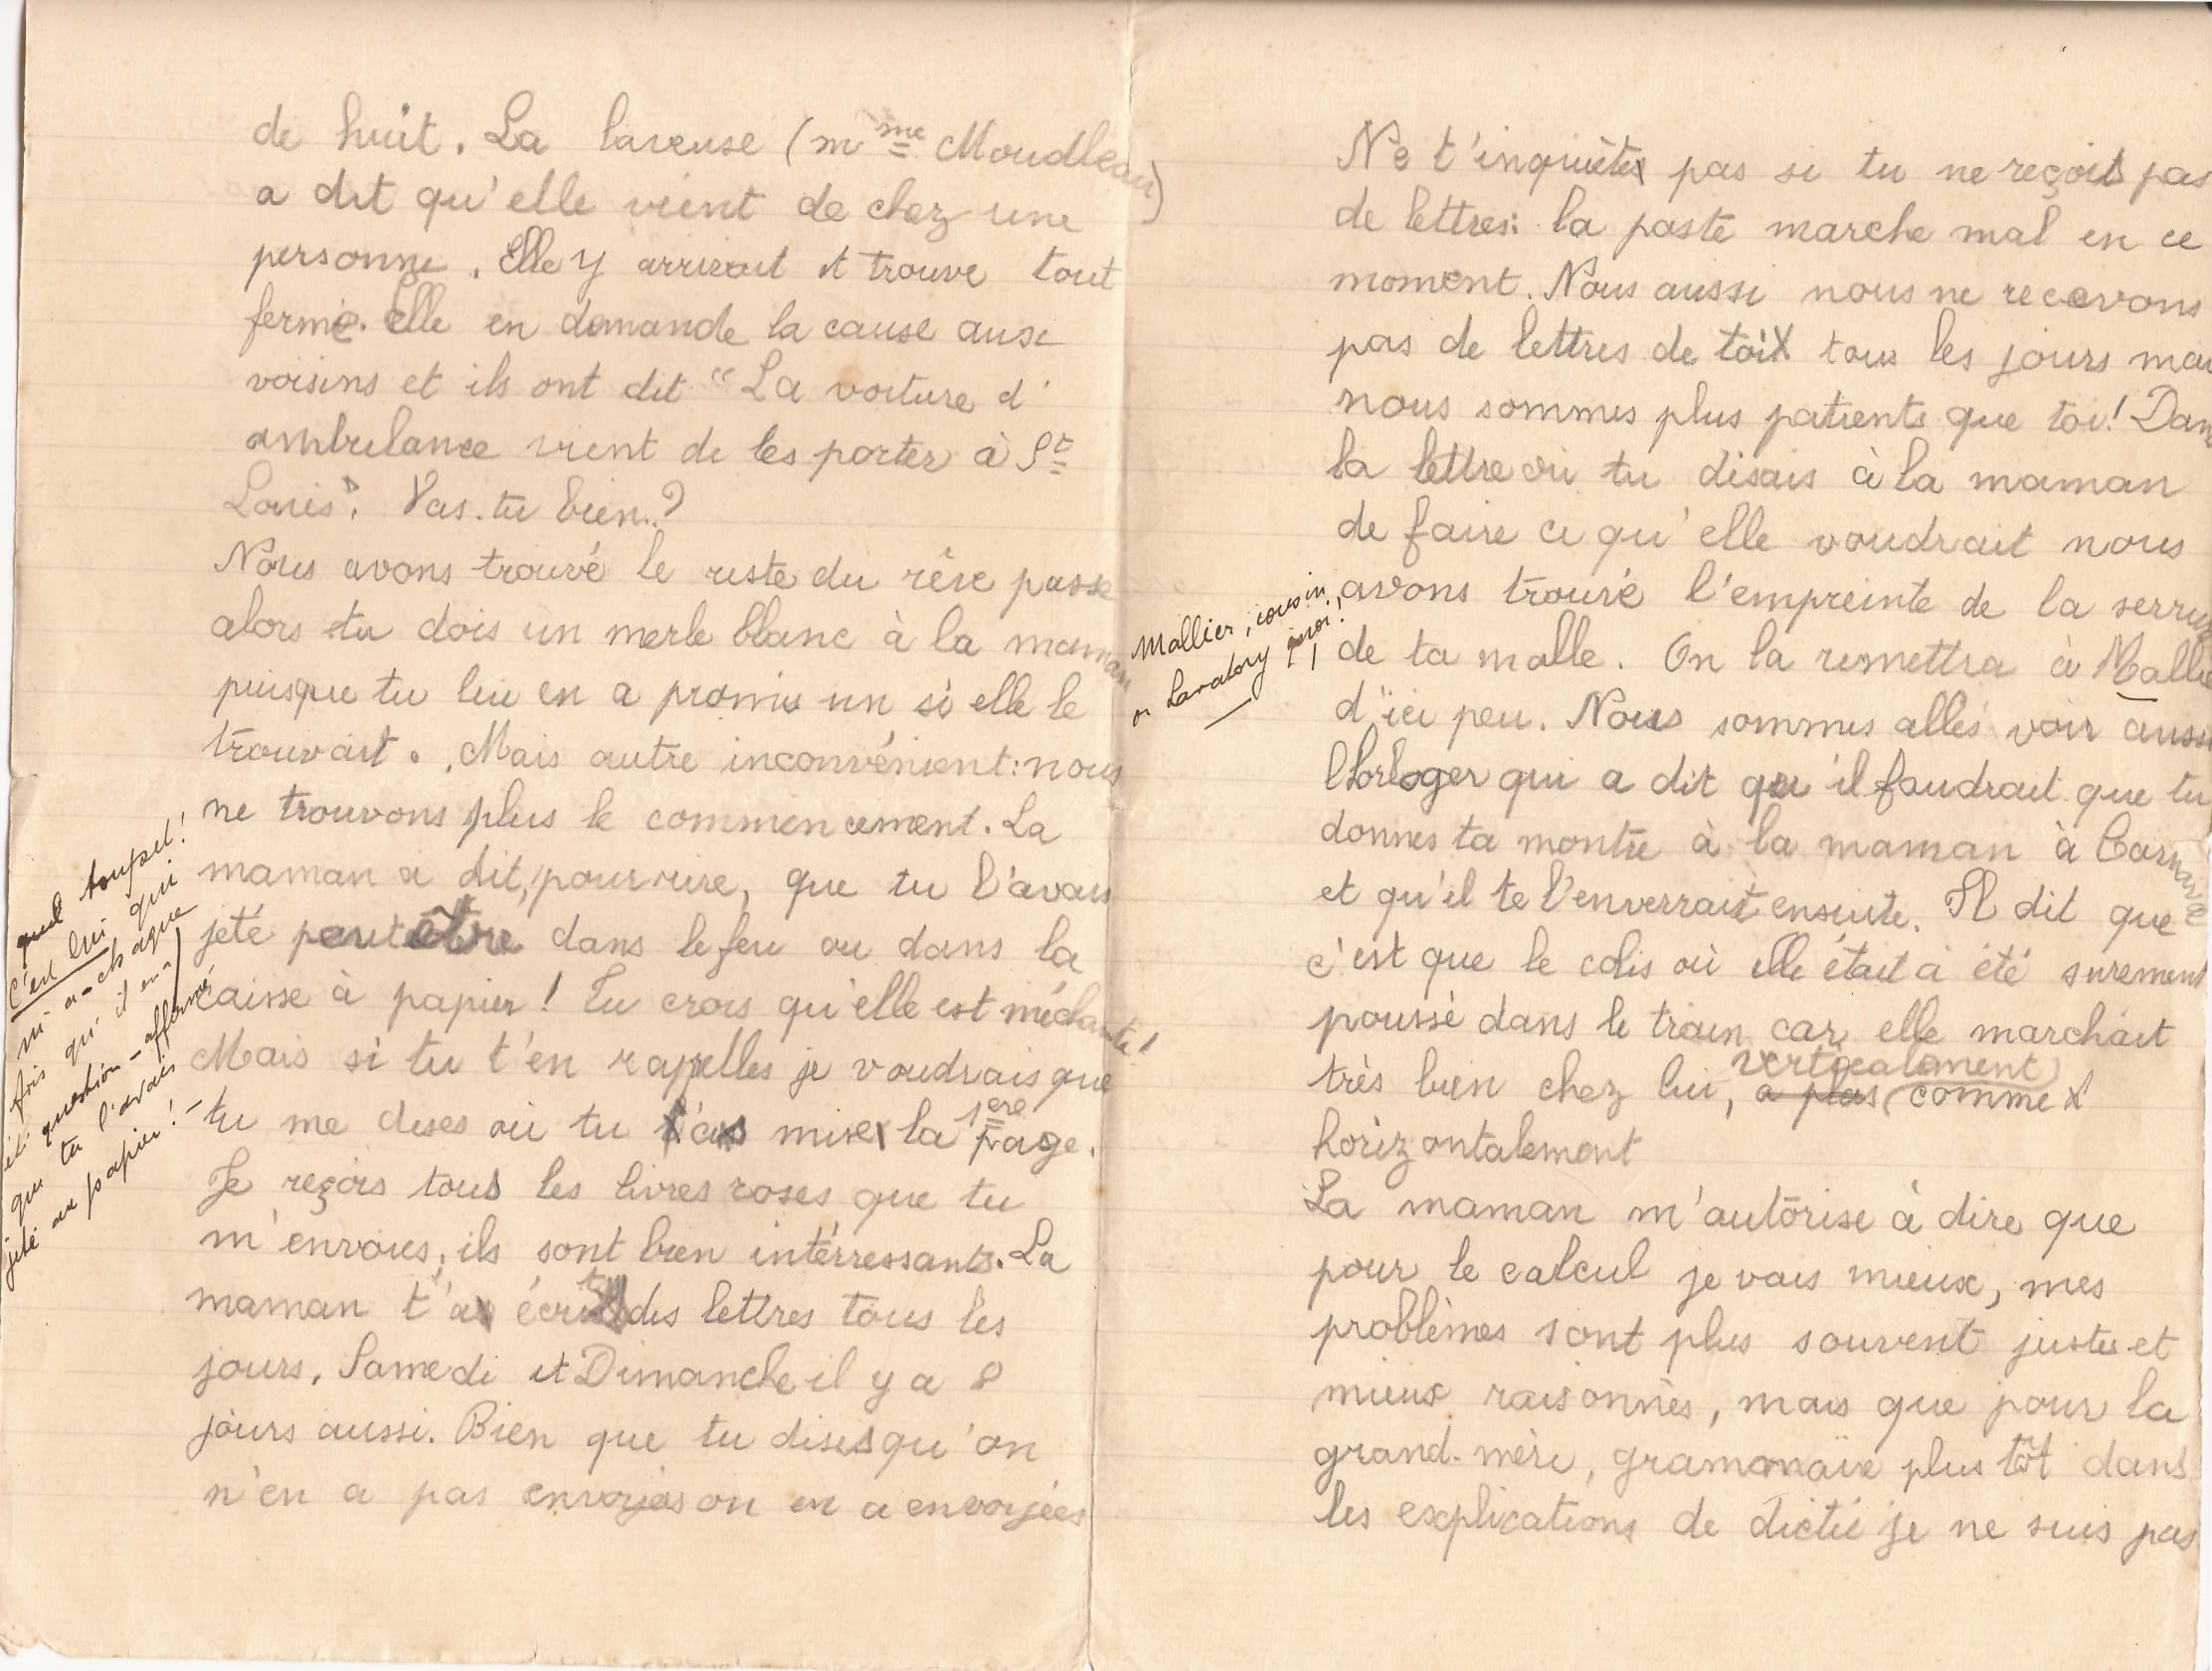 de huit. La laveuse (m me Moudleau)
a dit qu'elle vient de chez une
personne. Elle y arrivait et trouve tout
fermé. elle en demande la cause aux
voisins et ils ont dit "La voiture d'
ambulance vient de les porter à St
Louis". Vas-tu bien?
Nous avons trouvé le reste du rêve passe
alors tu dois un merle blanc à la maman
puisque tu lui en a promis un si elle le
trouvait. Mais autre inconvénient: nous
ne trouvons plus le commencement. La
maman a dit, pour rire, que tu l'avais
jeté peut être dans le feu ou dans la
caisse à papier! Tu crois qu'elle est méchante!
Mais si tu t'en rappelles je voudrais que
tu me dises où tu as mise la 1ere page.
Je reçois tous les livres roses que tu
m'envoies, ils sont bien intérressants. La
maman t'a écrit des lettres tous les
jours, Samedi et Dimanche il y a 8
jours aussi. Bien que tu dises qu'on
n'en a pas envoyées on en a envoyées
quel toupet!
c'est lui qui
m'a-chaque
fois qu'il en a
été question-affirmé
que tu l'avais
jeté au papier!-
Ne t'inquiète pas si tu ne reçois pas
de lettres: la poste marche mal en ce
moment. Nous aussi nous ne recevons
pas de lettres de toi tous les jours mai
nous sommes plus patients que toi! Dans
la lettre où tu disais à la maman
de faire ce qu'elle voudrait nous
avons trouvé l'empreinte de la serrure
de ta malle. On la remettra à Mallie
d'ici peu. Nous sommes allés voir aussi
l'horloger qui a dit qu'il faudrait que tu
donnes ta montre à la maman à Carnaval
et qu'il te l'enverrait ensuite. Il dit que
c'est que le colis où elle était a été surement
poussé dans le train car elle marchait
très bien chez lui, a plas verticalement comme
horizontalement
La maman m'autorise à dire que
pour le calcul je vais mieux, mes
problèmes sont plus souvent justes et
mieux raisonnés, mais que pour la
grand-mère, grammaire plus tôt dans
les explications de dictée je ne suis pas
Mallier, cousin,
on Lavatory